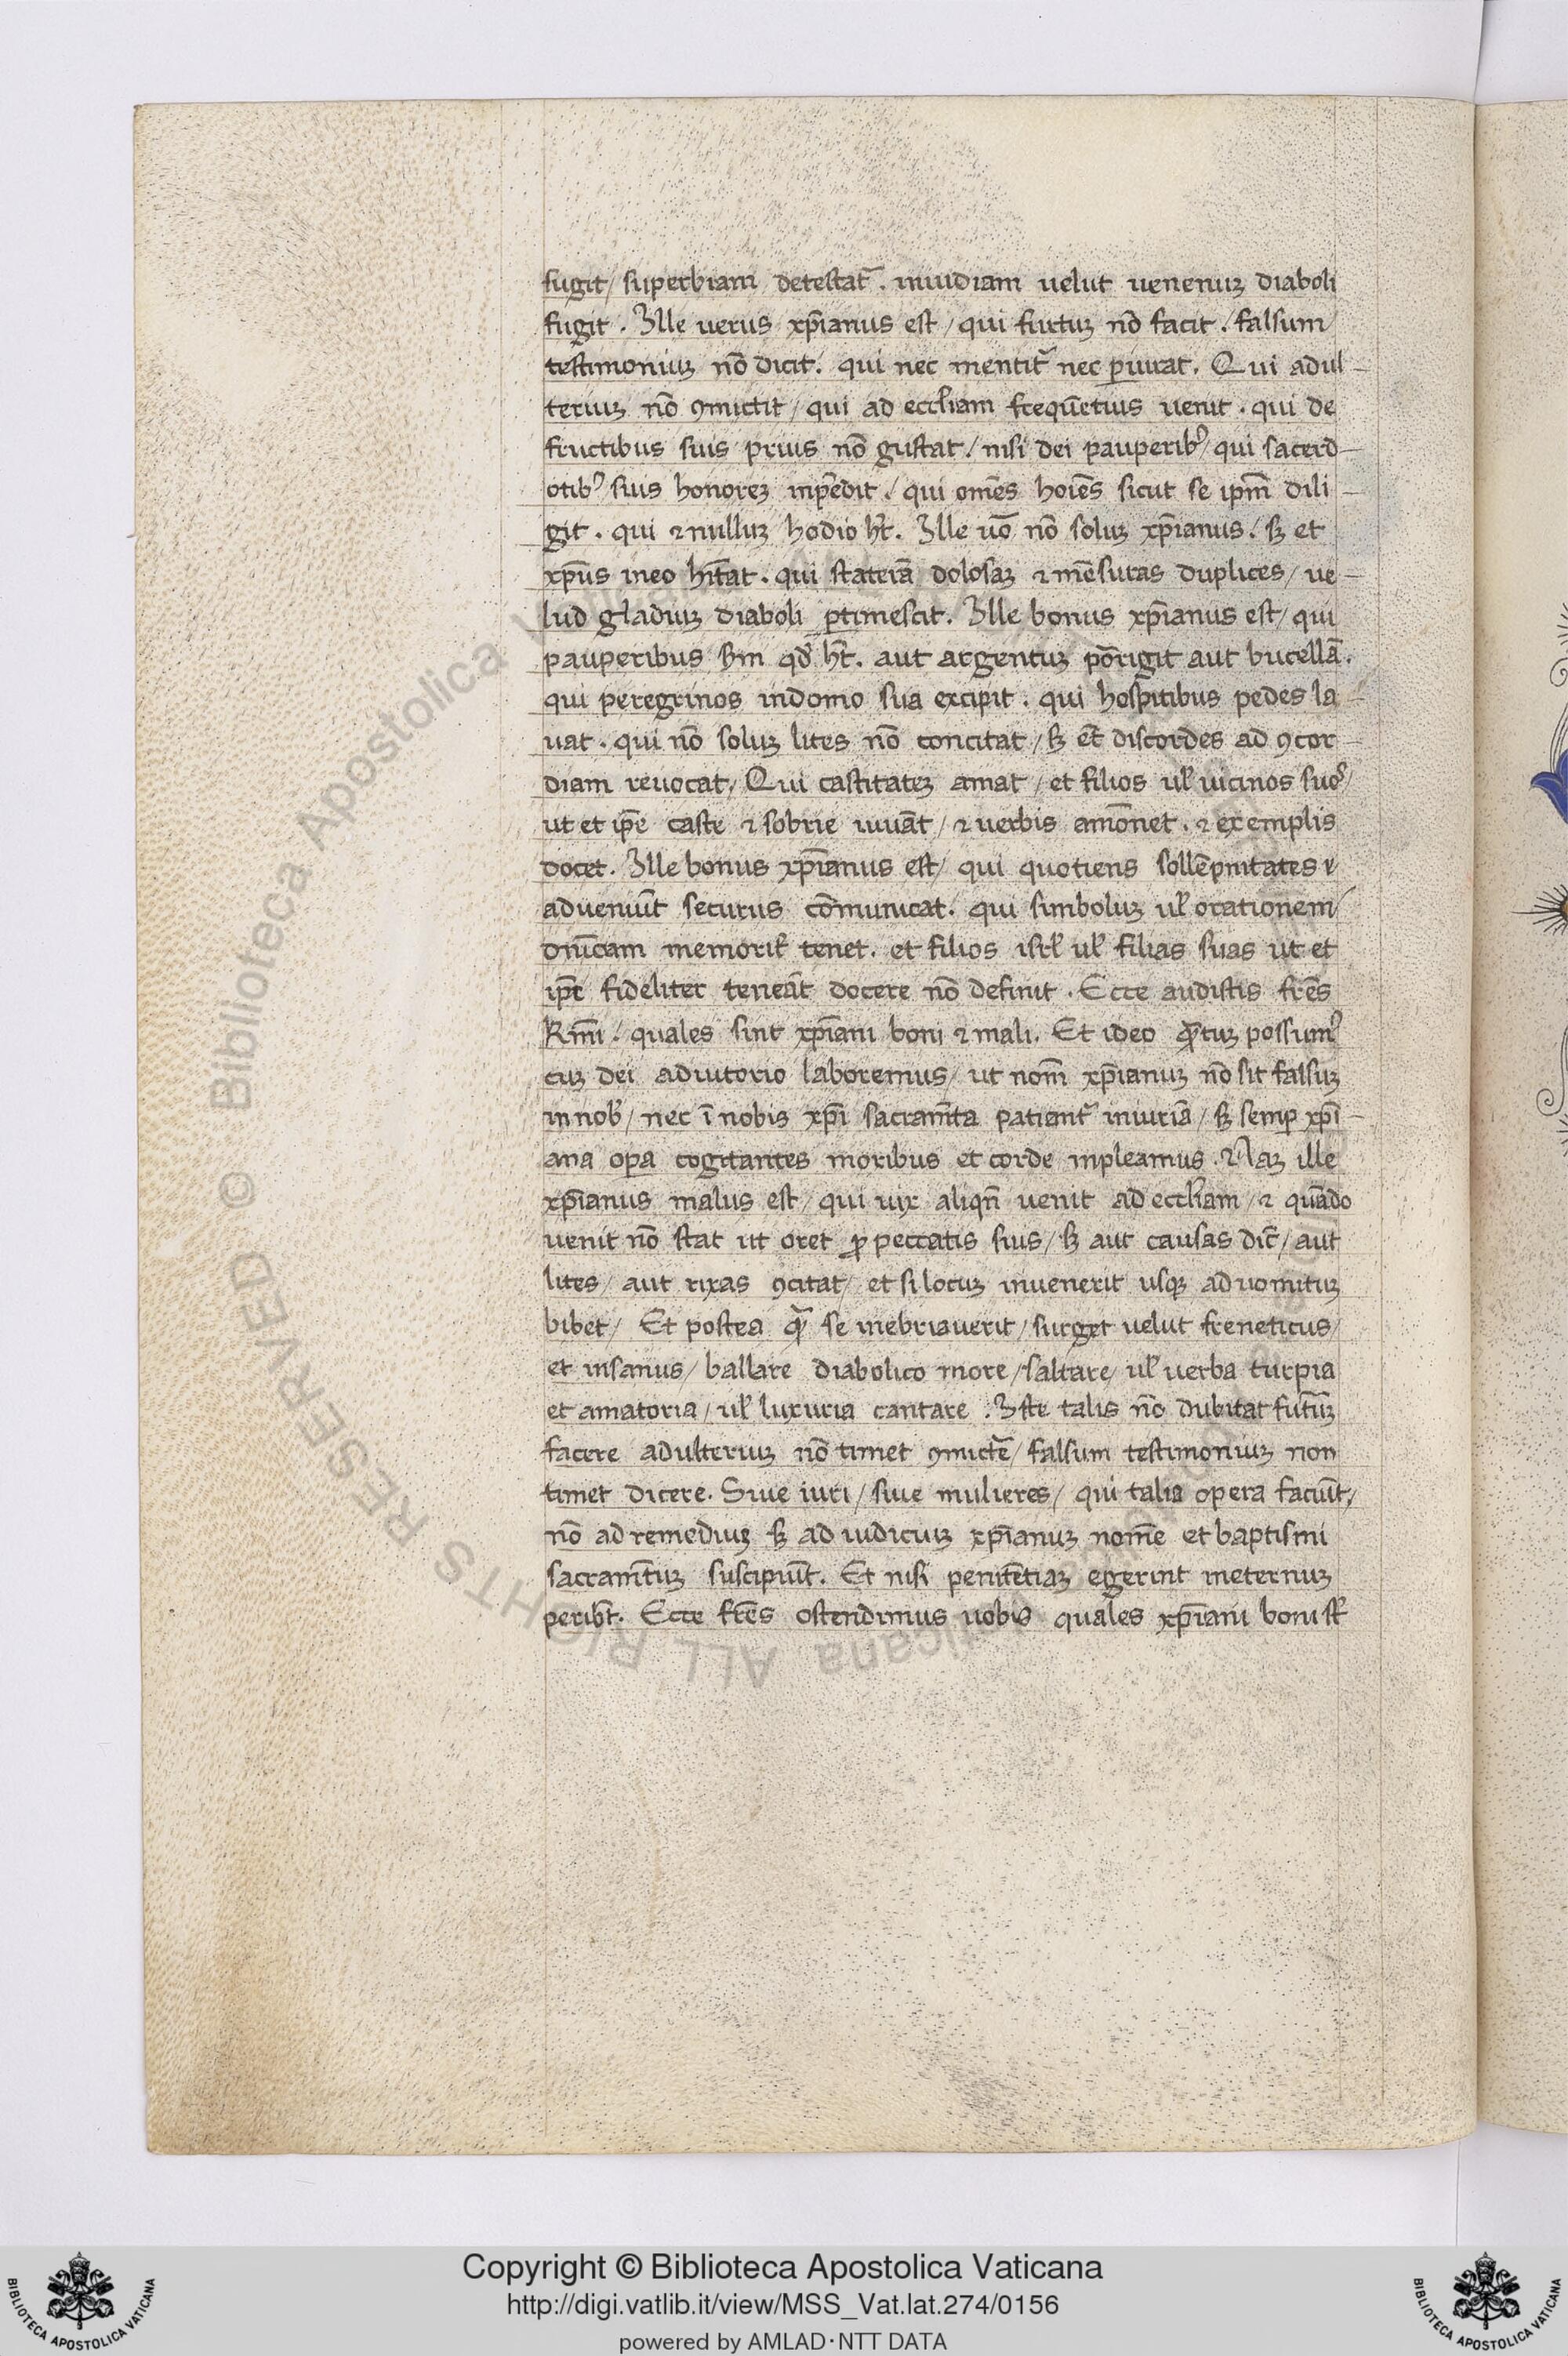 fugit/ superbiam detestat̃. inuidiam uelut uenenuȝ diaboli
fugit. Ille uerus xp̄ianus est/ qui furtuȝ nō facit. falsum
testimoniuȝ nō dicit. qui nec mentit̃ nec ꝑiurat. Qui adul-
teriuȝ nō ꝯmictit/ qui ad eccl̄iam frequētius uenit. qui de
fructibus suis prius nō gustat/ nisi dei pauperib⁹/ qui sacerd-
otib⁹ suis honoreȝ inpēdit/ qui om̄es hoīes sicut se ip̄m dili-
git. qui ⁊ nulluȝ hodio ht̄. Ille uō nō soluȝ xp̄ianus/ sȝ et
xp̄us ineo hītat. qui staterā dolosaȝ ⁊ mēsuras duplices/ ue-
lud gladiuȝ diaboli ꝑtimescit. Ille bonus xp̄ianus est/ qui
pauperibus ẜm qđ ht̄. aut argentuȝ pōrigit aut bucellā.
qui peregrinos indomo sua excipit. qui hospitibus pedes la-
uat. qui nō soluȝ lites nō concitat/ sȝ et̄ discordes ad ꝯcor-
diam reuocat/ Qui castitateȝ amat/ et filios ul̄ uicinos suo⁹/
ut et ip̄e caste ⁊ sobrie uiuāt/ ⁊ uerbis amōnet. ⁊ exemplis
docet. Ille bonus xp̄ianus est/ qui quotiens sollēpnitates
adueniūt securus cōmunicat. qui simboluȝ ul̄ orationem/
dn̄icam memorit̄ tenet. et filios ul̄ filias suas ut et
ip̄e fideliter teneāt docere nō definit. Ecce audistis fr̄es
kmī/ quales sint xp̄iani boni ⁊ mali. Et ideo ꝙ̄tuȝ possum⁹
cuȝ dei adiutorio laboremus/ ut nom̄ xp̄ianuȝ nō sit falsuȝ
in nob̄/ nec ī nobis xp̄i sacram̄ta patiant̃ iniuriā/ sȝ semꝑ xp̄i-
ana oꝑa cogitantes moribus et corde inpleamus. Naȝ ille
xp̄ianus malus est/ qui uix aliqn̄ uenit ad eccl̄iam/ ⁊ quādo
uenit nō stat ut oret ꝓ peccatis suis/ sȝ aut causas dic̄/ aut
lites/ aut rixas ꝯcitat/ et si locuȝ inuenerit usqȝ ad uomituȝ
bibet/ Et postea ꝙ̄ se inebriauerit/ surget uelut freneticus/
et insanus/ ballare diabolico more/ saltare/ ul̄ uerba turpia
et amatoria/ ul̄ luxuria cantare. Iste talis nō dubitat furtuȝ
facere adulteriuȝ nō timet ꝯmictē/ falsum testimoniuȝ non
timet dicere. Siue iuri/ siue mulieres/ qui talia opera faciūt/
nō ad remediuȝ sȝ ad iudiciuȝ xp̄ianuȝ nom̄e et baptismi
sacram̄tuȝ suscipiūt. Et nisi penitētiaȝ egerint ineternuȝ
peribt̄. Ecce fr̄es ostendimus uobis quales xp̄iani boni st̄
© Biblioteca Apostolica Vaticana ALL RIGHTS RESERVED
Copyright © Biblioteca Apostolica Vaticana
http://digi.vatlib.it/view/MSS_Vat.lat.274/0156
powered by AMLAD·NTT DATA
BIBLIOTECA APOSTOLICA VATICANA
BIBLIOTECA APOSTOLICA VATICANA